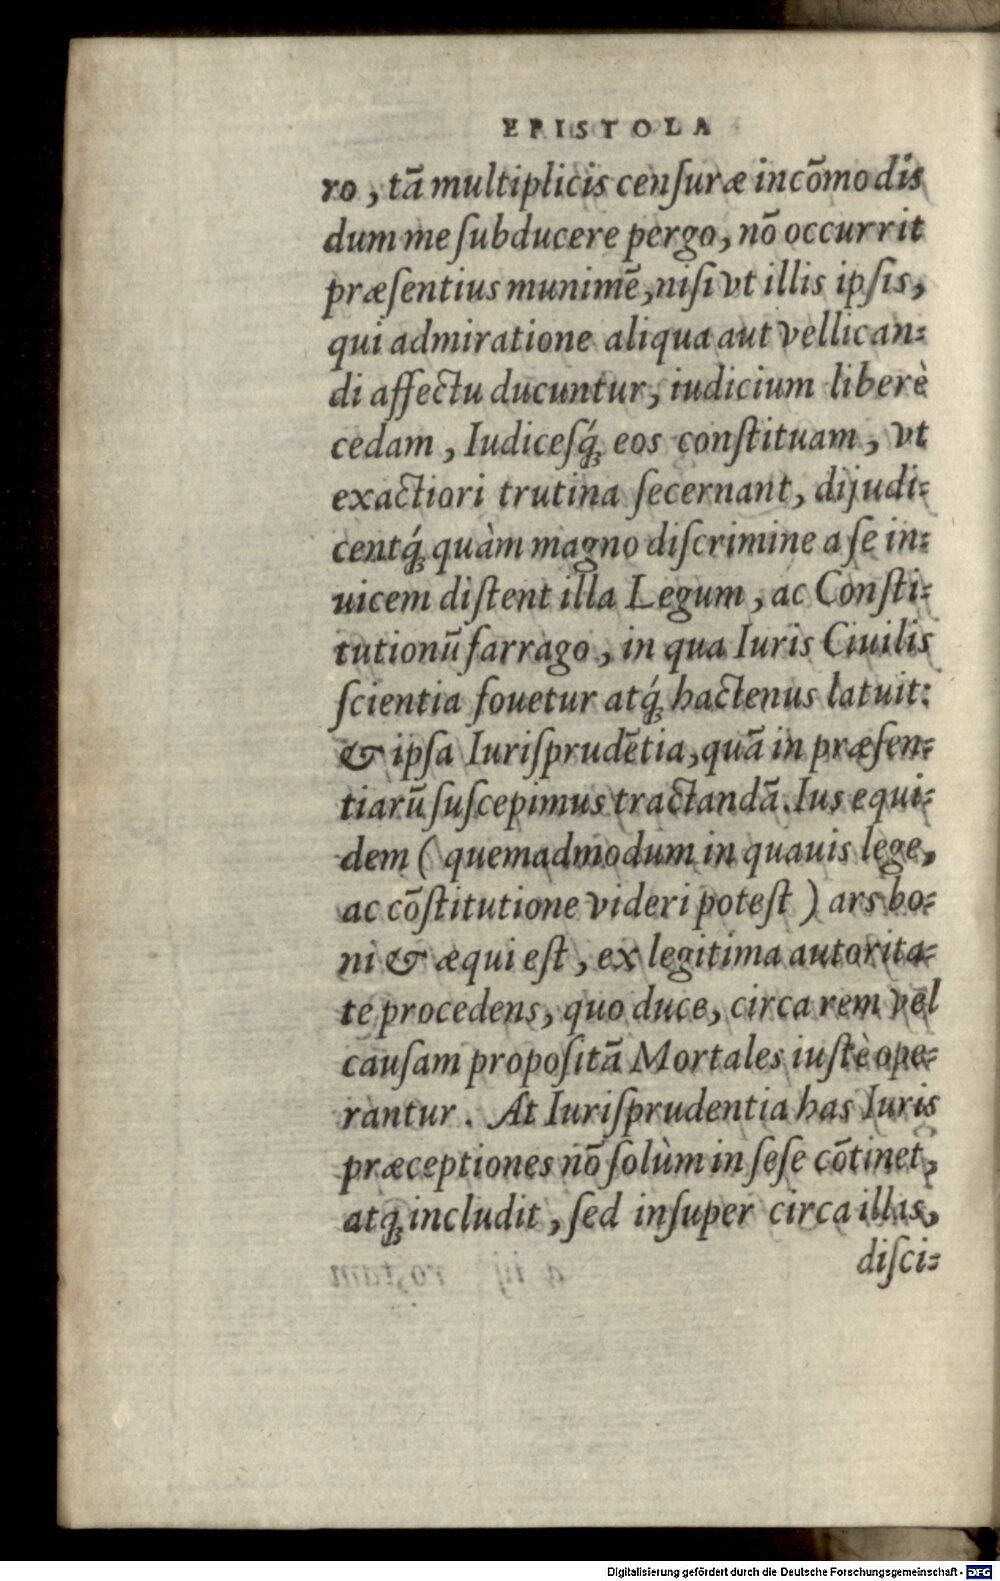 EPISTOLA
ro, tā multiplicis cenſuræ incōmodis
dum me ſubducere pergo, nō occurrit
præſentius munimē, niſi vt illis ipſis,
qui admiratione aliqua aut vellican⸗
di affectu ducuntur, iudicium liberè
cedam, Iudiceſq́; eos conſtituam, vt
exactiori trutina ſecernant, dijudi⸗
centq́; quàm magno diſcrimine a ſe in⸗
uicem diſtent illa Legum, ac Conſti⸗
tutionū farrago, in qua Iuris Ciuilis
ſcientia fouetur atq́; hactenus latuit:
& ipſa Iuriſprudētia, quā in præſen⸗
tiarū ſuſcepimus tractandā. Ius equi⸗
dem ( quemadmodum in quauis lege,
ac cōſtitutione videri poteſt ) ars bo⸗
ni & æqui eſt, ex legitima autorita⸗
te procedens, quo duce, circa rem vel
cauſam propoſitā Mortales iuſtè ope⸗
rantur. At Iuriſprudentia has Iuris
præceptiones nō ſolùm in ſeſe cōtinet,
atq; includit, ſed inſuper circa illas,
diſci⸗
Digitalisierung gefördert durch die Deutsche Forschungsgemeinschaft - DFG